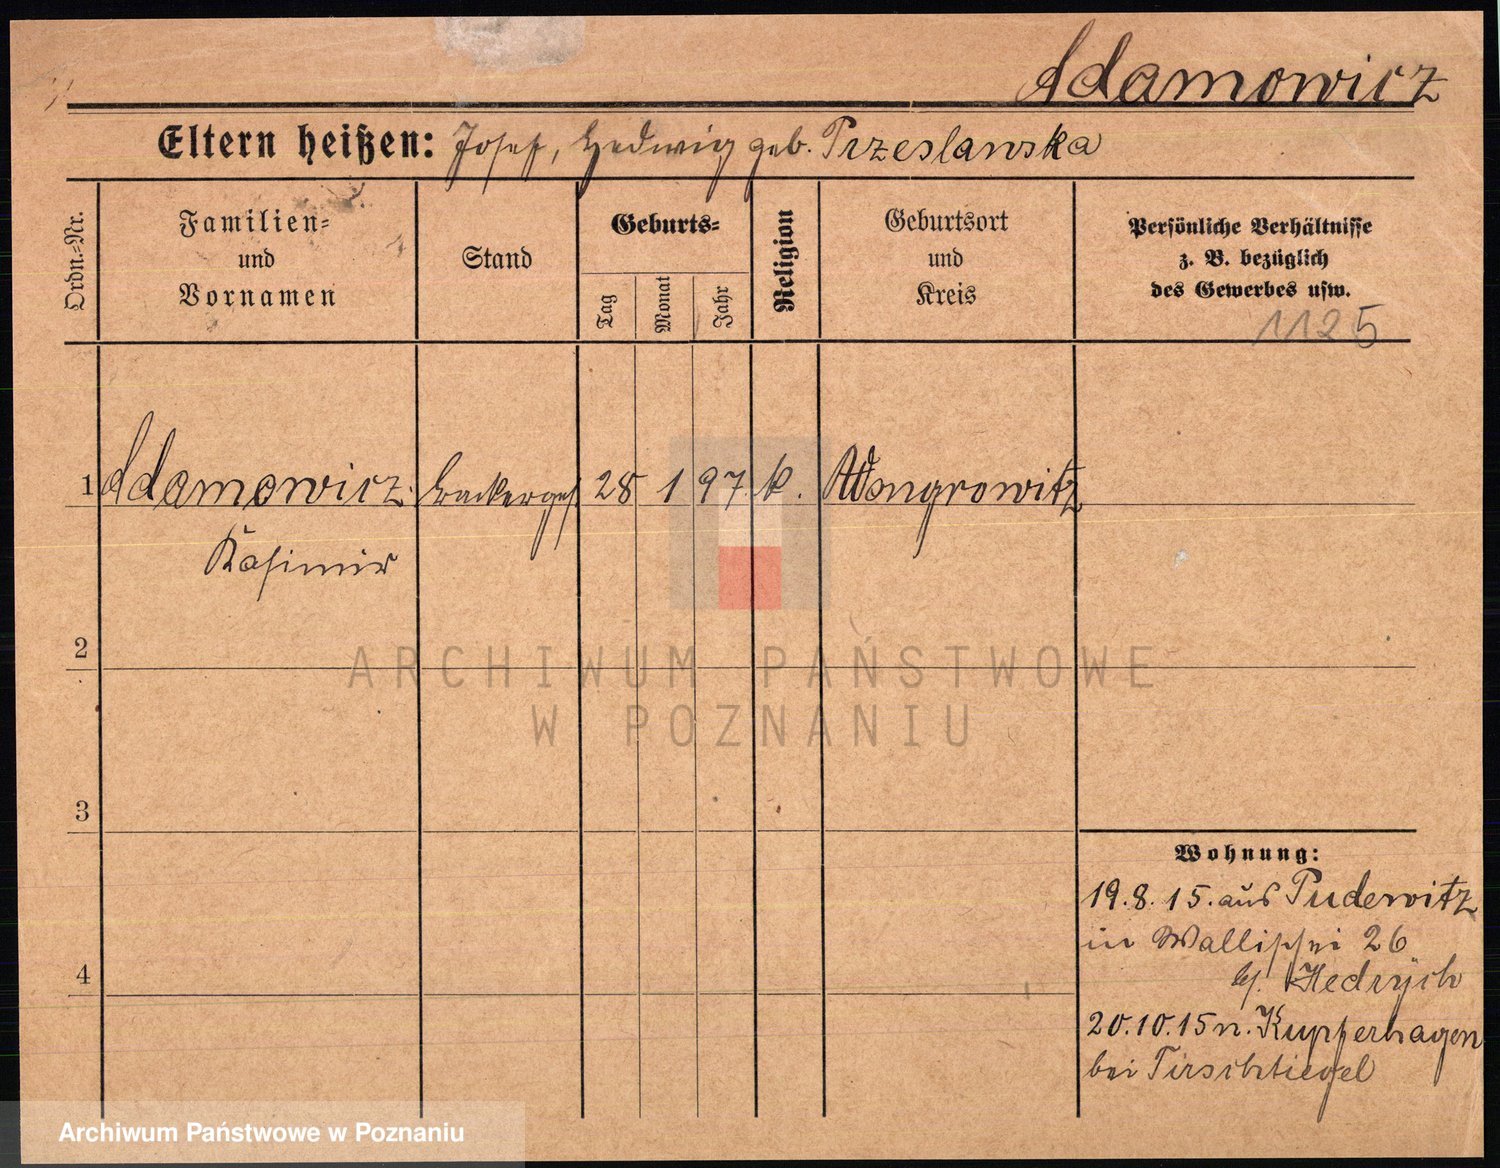 Adamowicz
Eltern heißen: Josef, Hedwig geb. Przeslawska
Ordn.-Nr.
Familien-
und
Vornamen
Stand
Geburts-
Tag
Monat
Jahr
Religion
Geburtsort
und
Kreis
Persönliche Verhältnisse
z. B. bezüglich
des Gewerbes usw.
1125
1 Adamowicz Bäckerges. 28 1 97 k. Wongrowitz
Kasimir
2
3
4
Wohnung:
19.8.15. aus Pudewitz
in Wallischei 26
b/. Hedrych
20.10.15 n. Kupferhagen
bei Tirschtiegel
ARCHIWUM PAŃSTWOWE
W POZNANIU
Archiwum Państwowe w Poznaniu